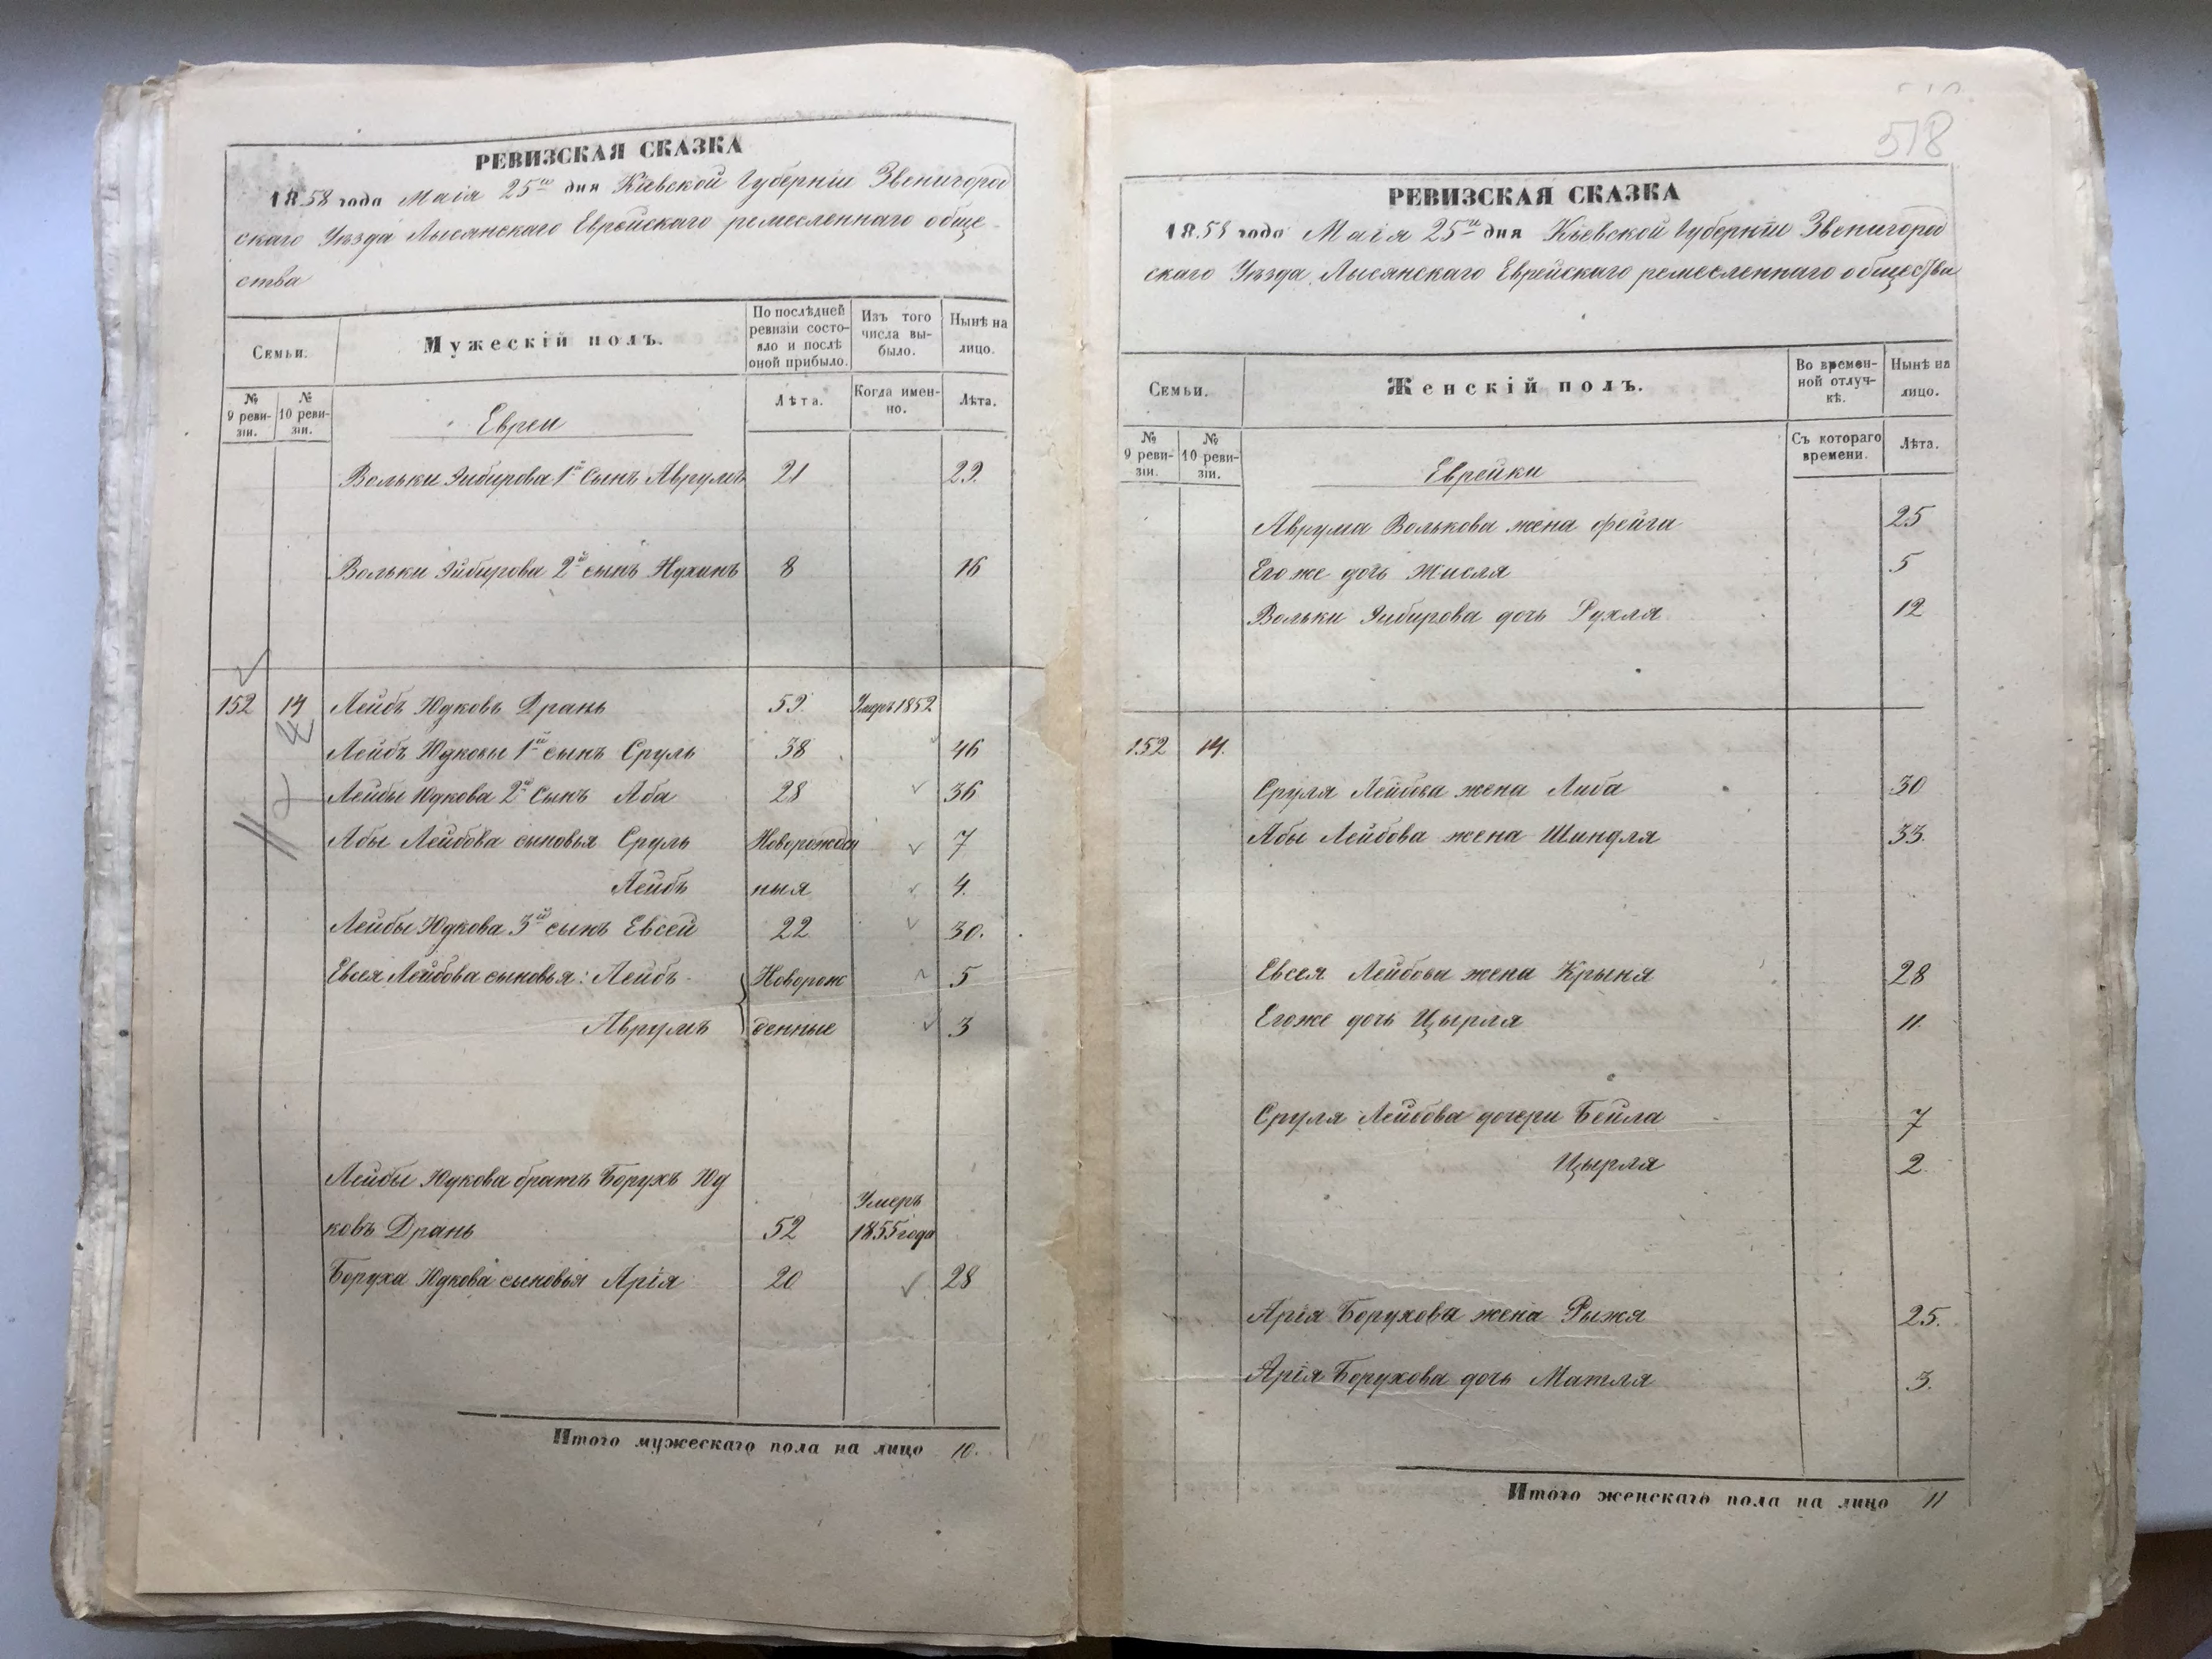 РЕВИЗСКАЯ СКАЗКА
1858 года Маія 25го дня Кіевской Губерніи Звенигород
скаго Уѣзда Лысянскаго Еврейскаго ремесленнаго обще
ства
Семьи.
Мужескій полъ.
По послѣдней ревизіи состояло и послѣ оной прибыло.
Изъ того числа выбыло.
Нынѣ на лицо.
№ 9 ревизіи.
№ 10 ревизіи.
Евреи
Лѣта.
Когда именно.
Лѣта.
Вольки 1й Сынъ Аврумъ 21 29.
Вольки 2й сынъ Нухимъ 8 16
152 14 Лейбъ Юдковъ Дрань 59. Умеръ 1852
Лейбъ Юдковы 1й сынъ Сруль 38 46
Лейбы Юдкова 2й Сынъ Аба 28 36
Абы Лейбова сыновья Сруль Новорожден 7
Лейбъ ныя 4.
Лейбы Юдкова 3й сынъ Евсей 22 30.
Евсея Лейбова сыновья: Лейбъ Новорож 5
Аврумъ денные 3
Лейбы Юдкова братъ Борухъ Юд
ковъ Дрань 52 Умеръ 1855 года
Боруха Юдкова сыновья Арія 20 28
Итого мужескаго пола на лицо 10.
518
РЕВИЗСКАЯ СКАЗКА
1858 года Маія 25го дня Кіевской Губерніи Звенигород
скаго Уѣзда Лысянскаго Еврейскаго ремесленнаго общества
Семьи.
Женскій полъ.
Во временной отлучкѣ.
Нынѣ на лицо.
№ 9 ревизіи.
№ 10 ревизіи.
Еврейки
Съ котораго времени.
Лѣта.
Аврума Волькова жена Фейга 25
Его же дочь Жисля 5
Вольки дочь Рухля 12
152 14.
Сруля Лейбова жена Либа 30
Абы Лейбова жена Шиндля 33.
Евсея Лейбова жена Крыня 28
Его же дочь Цырля 11.
Сруля Лейбова дочери Бейла 7
Цырля 2.
Арія Борухова жена Рыжя 25.
Арія Борухова дочь Матля 3.
Итого женскаго пола на лицо 11